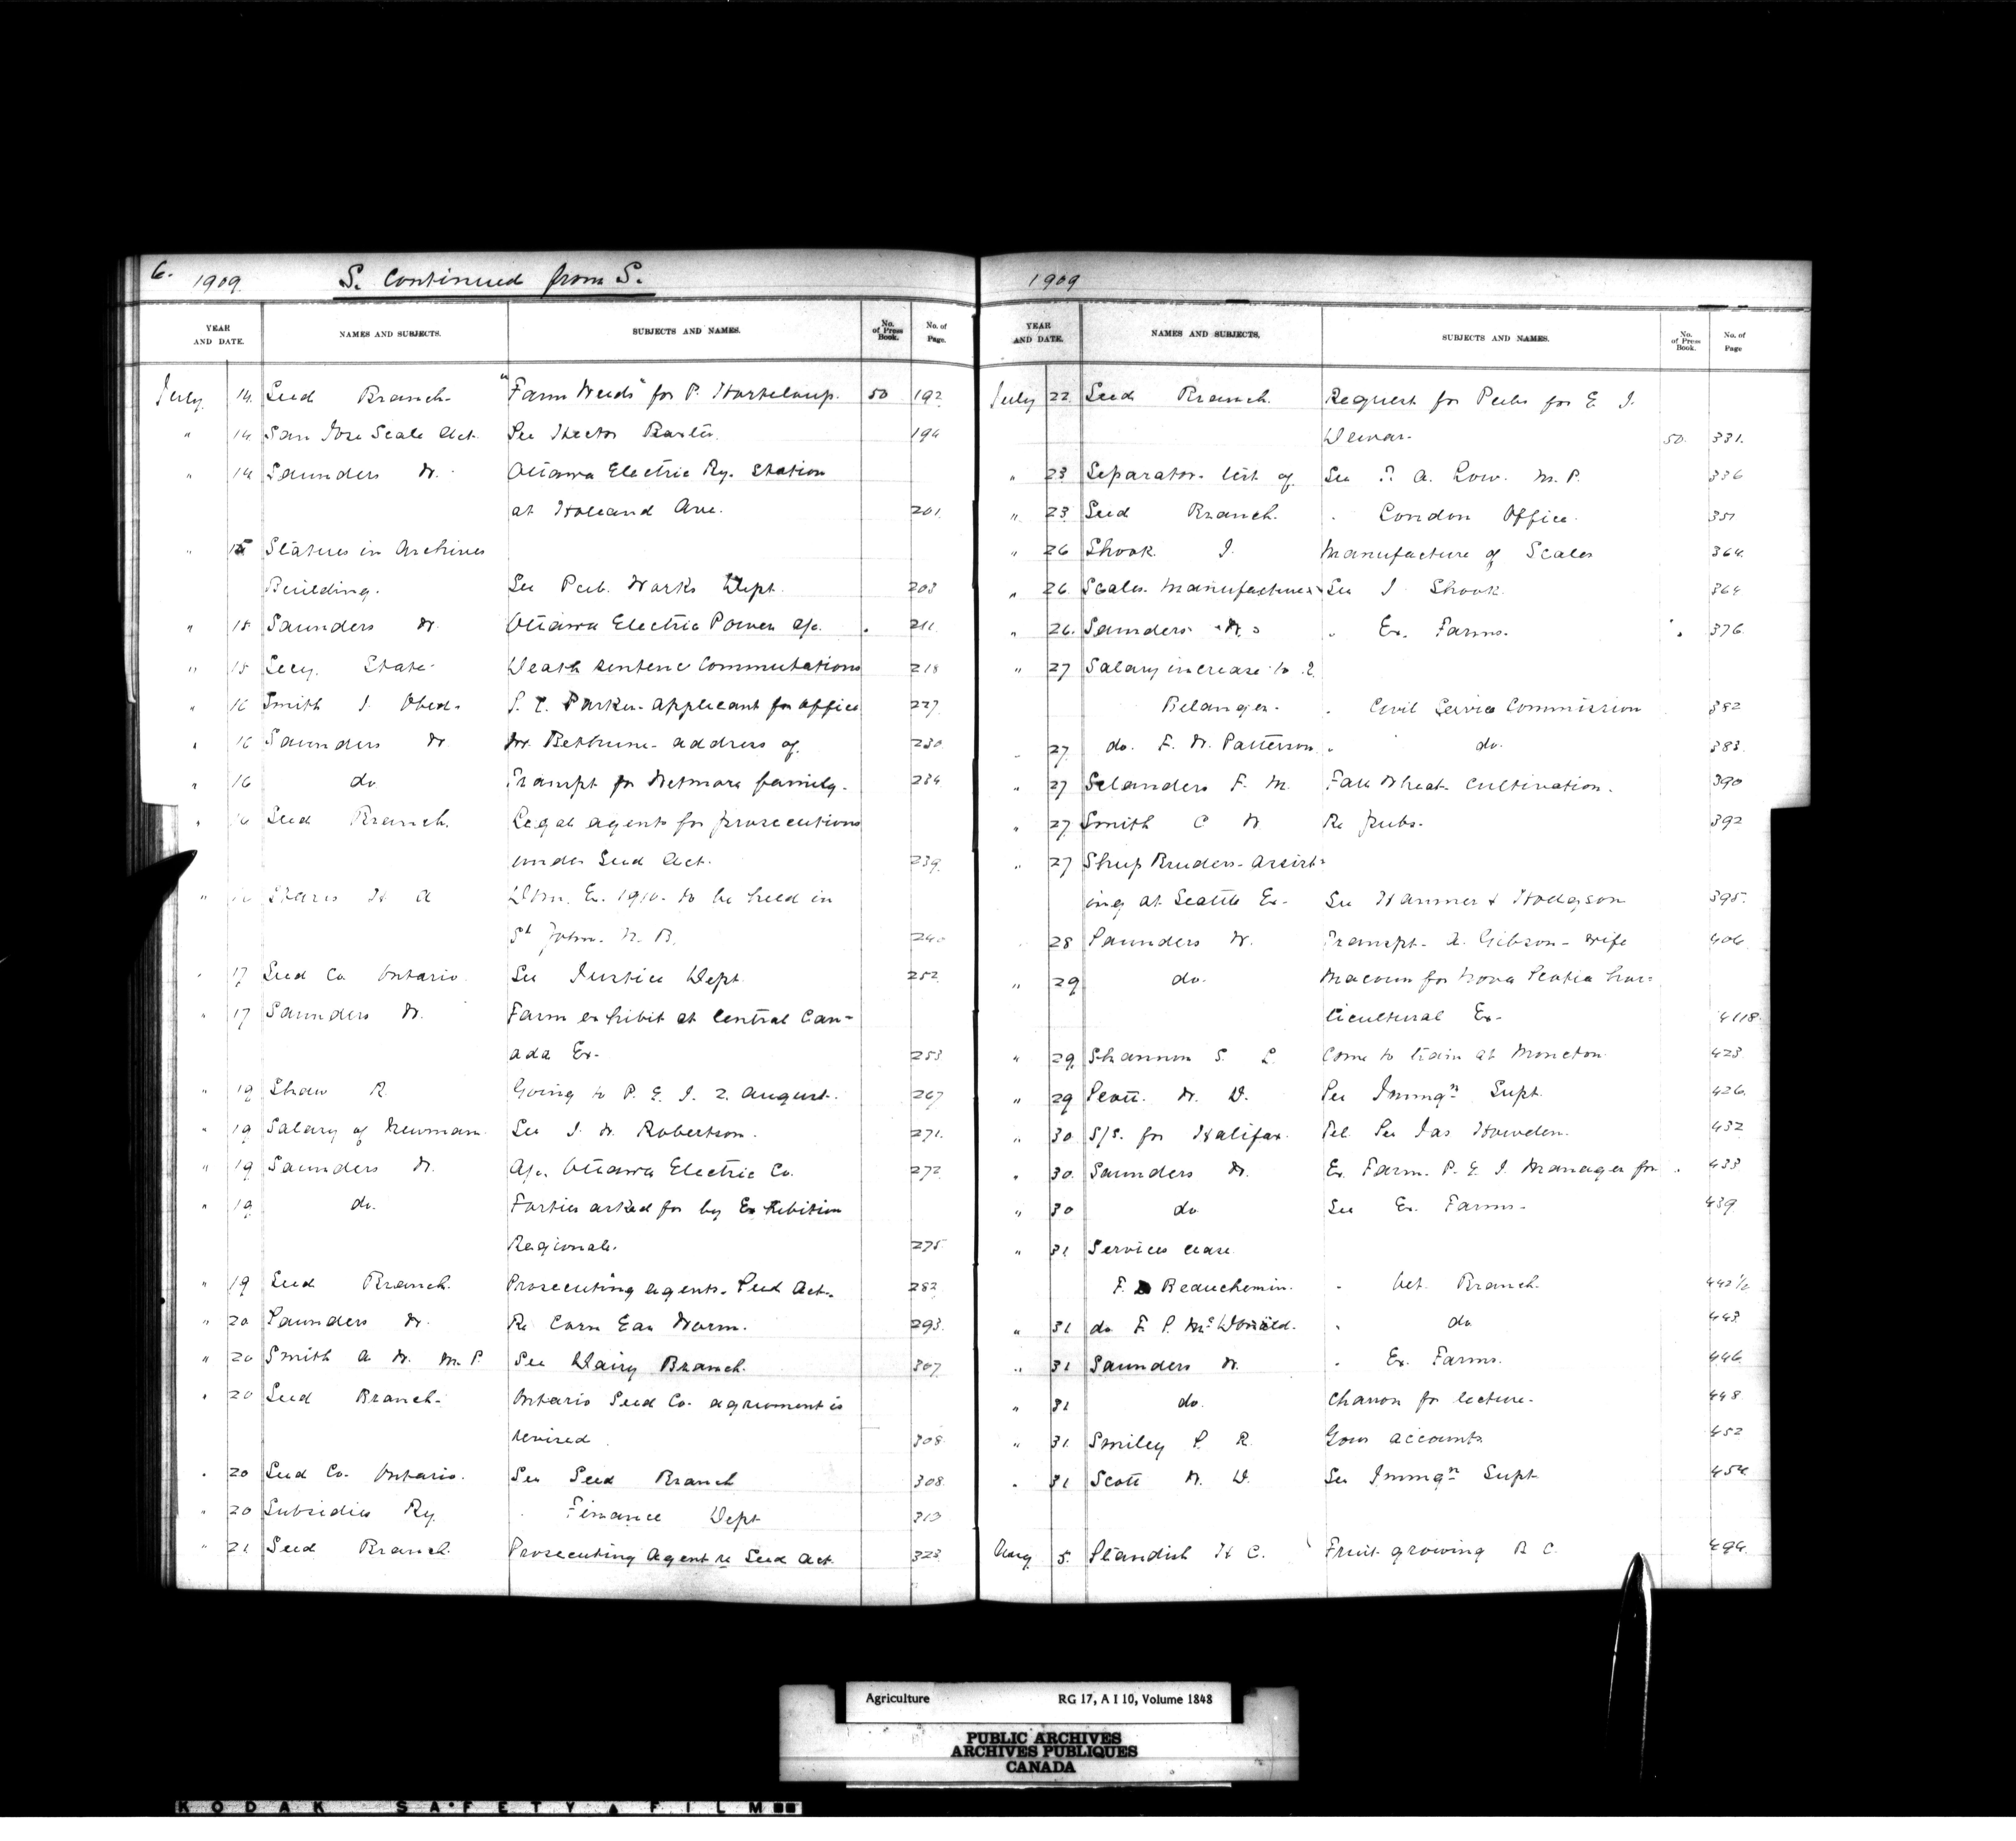 6. 1909. S. Continued from S.
YEAR AND DATE. NAMES AND SUBJECTS. SUBJECTS AND NAMES. No. of Press Book. No. of Page.
July 14 Seed Branch. "Farm Weeds" for P. 50 192
" 14 San Jose Scale Act. See Hector Baxter. 194
" 14 Saunders W. Ottawa Electric Ry. Station
at Holland Ave. 201
" 15 Statues in Archives
Building. See Pub. Works Dept. 203
" 15 Saunders W. Ottawa Electric Power a/c. 211
" 15 Secy. State. Death sentence Commutations 218
" 16 Smith J. Obed. Parker - applicant for office 227
" 16 Saunders W. Dr. Bethune - address of 230
" 16 do Transpt for Wetmore family. 234
" 16 Seed Branch. Legal agents for prosecutions
under Seed Act. 239
" 16 H A Dom. Ex. 1910. to be held in
St John. N. B.
" 17 Seed Co Ontario. See Justice Dept. 252
" 17 Saunders W. Farm exhibit at Central Can-
ada Ex- 253
" 19 Shaw R. Going to P. E. I. 2. August. 267
" 19 Salary of Newman. See J. W. Robertson. 271
" 19 Saunders W. A/c. Ottawa Electric Co. 272
" 19 do. asked for by Exhibition
Regional. 275
" 19 Seed Branch. Prosecuting agents. Seed Act. 282
" 20 Saunders W. Re Corn Ear Worm. 293
" 20 Smith A. W. M. P. See Dairy Branch. 307
" 20 Seed Branch- Ontario Seed Co. agreement is
revised. 308
" 20 Seed Co. Ontario. See Seed Branch 308
" 20 Subsidies Ry. " Finance Dept 313
" 21 Seed Branch. Prosecuting Agent re Seed Act. 323
1909
YEAR AND DATE. NAMES AND SUBJECTS. SUBJECTS AND NAMES. No. of Press Book. No. of Page
July 22 Seed Branch. Request for Pubs for E J.
Dewar. 50. 331.
" 23 Separator. list of See A. Low. M. P. 336
" 23 Seed Branch. " London Office. 351
" 26 Shook J. Manufacture of Scales 364
" 26 Scales. Manufacture See J Shook. 364
" 26. Saunders W. " Ex. Farms. 376
" 27 Salary increase to
Belanger. " Civil Service Commission 382
" 27 do. F. W. Patterson. " do. 383
" 27 Selanders F. M. Fall Wheat Cultivation. 390
" 27 Smith C W Re Pubs. 392
" 27 Bruders - assist-
ing at Seattle Ex. See Hammer & Hodgson 395.
28 Saunders W. Transpt. Gibson - wife 406
" 29 do. Macoun for Nova Scotia hor-
ticultural Ex- 418
" 29 Shannon S. L. Come to train at Moncton. 423
" 29 Scott. W. D. See Immgn Supt. 426
" 30 S/S. for Halifax. Tel. See Jas Howden. 432
" 30. Saunders W. Ex. Farm. P. E. I Manager for 433
" 30 do See Ex. Farms. 439
" 31 Services cease.
F. Beauchemin. " Vet. Branch. 442½
" 31 do F. P. McDonald. " do 443
" 31 Saunders W. " Ex. Farms. 446
" 31 do. Charron for lecture. 448
" 31 Smiley S. R. Gour accounts 452
" 31 Scott W. D. See Immgn Supt 454
Aug 5. Standish H C. Fruit growing B C. 494.
Agriculture RG 17, A I 10, Volume 1848
PUBLIC ARCHIVES
ARCHIVES PUBLIQUES
CANADA
KODAK SAFETY FILM